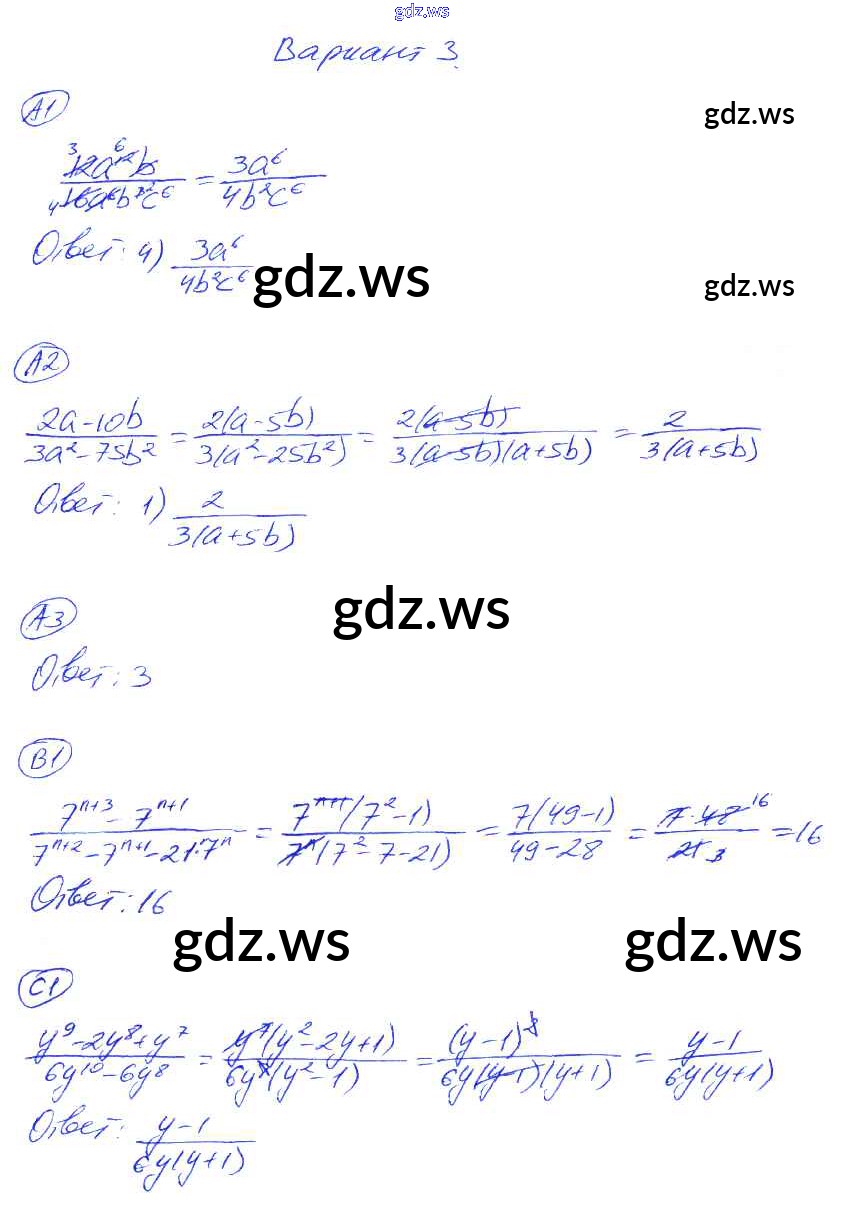 gdz.ws
Вариант 3.
А1
gdz.ws
12a^12b / 16a^6b^3c^6 = 3a^6 / 4b^2c^6
Ответ: 4) 3a^6 / 4b^2c^6
gdz.ws
gdz.ws
А2
2a-10b / 3a^2-75b^2 = 2(a-5b) / 3(a^2-25b^2) = 2(a-5b) / 3(a-5b)(a+5b) = 2 / 3(a+5b)
Ответ: 1) 2 / 3(a+5b)
gdz.ws
А3
Ответ: 3
В1
7^n+3 - 7^n+1 / 7^n+2 - 7^n+1 - 21·7^n = 7^n+1(7^2-1) / 7^n(7^2-7-21) = 7(49-1) / 49-28 = 7·48 16 / 21 3 = 16
Ответ: 16
gdz.ws
gdz.ws
С1
y^9-2y^8+y^7 / 6y^10-6y^8 = y^7(y^2-2y+1) / 6y^8(y^2-1) = (y-1)^2 / 6y(y-1)(y+1) = y-1 / 6y(y+1)
Ответ: y-1 / 6y(y+1)